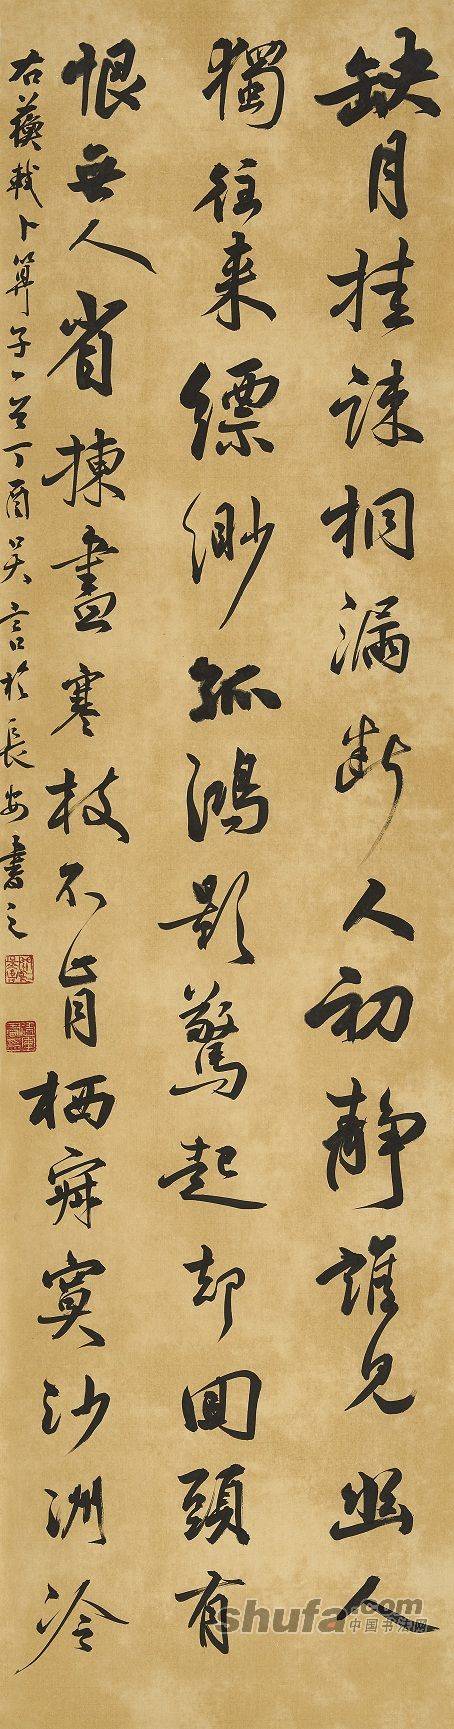 缺月挂疎桐漏断人初静誰見幽人
獨往来縹緲孤鴻影驚起却回頭有
恨無人省揀盡寒枝不肯栖寂寞沙洲冷
右蘇軾卜算子一首丁酉吴言於長安書之
shufa.com
中国书法网